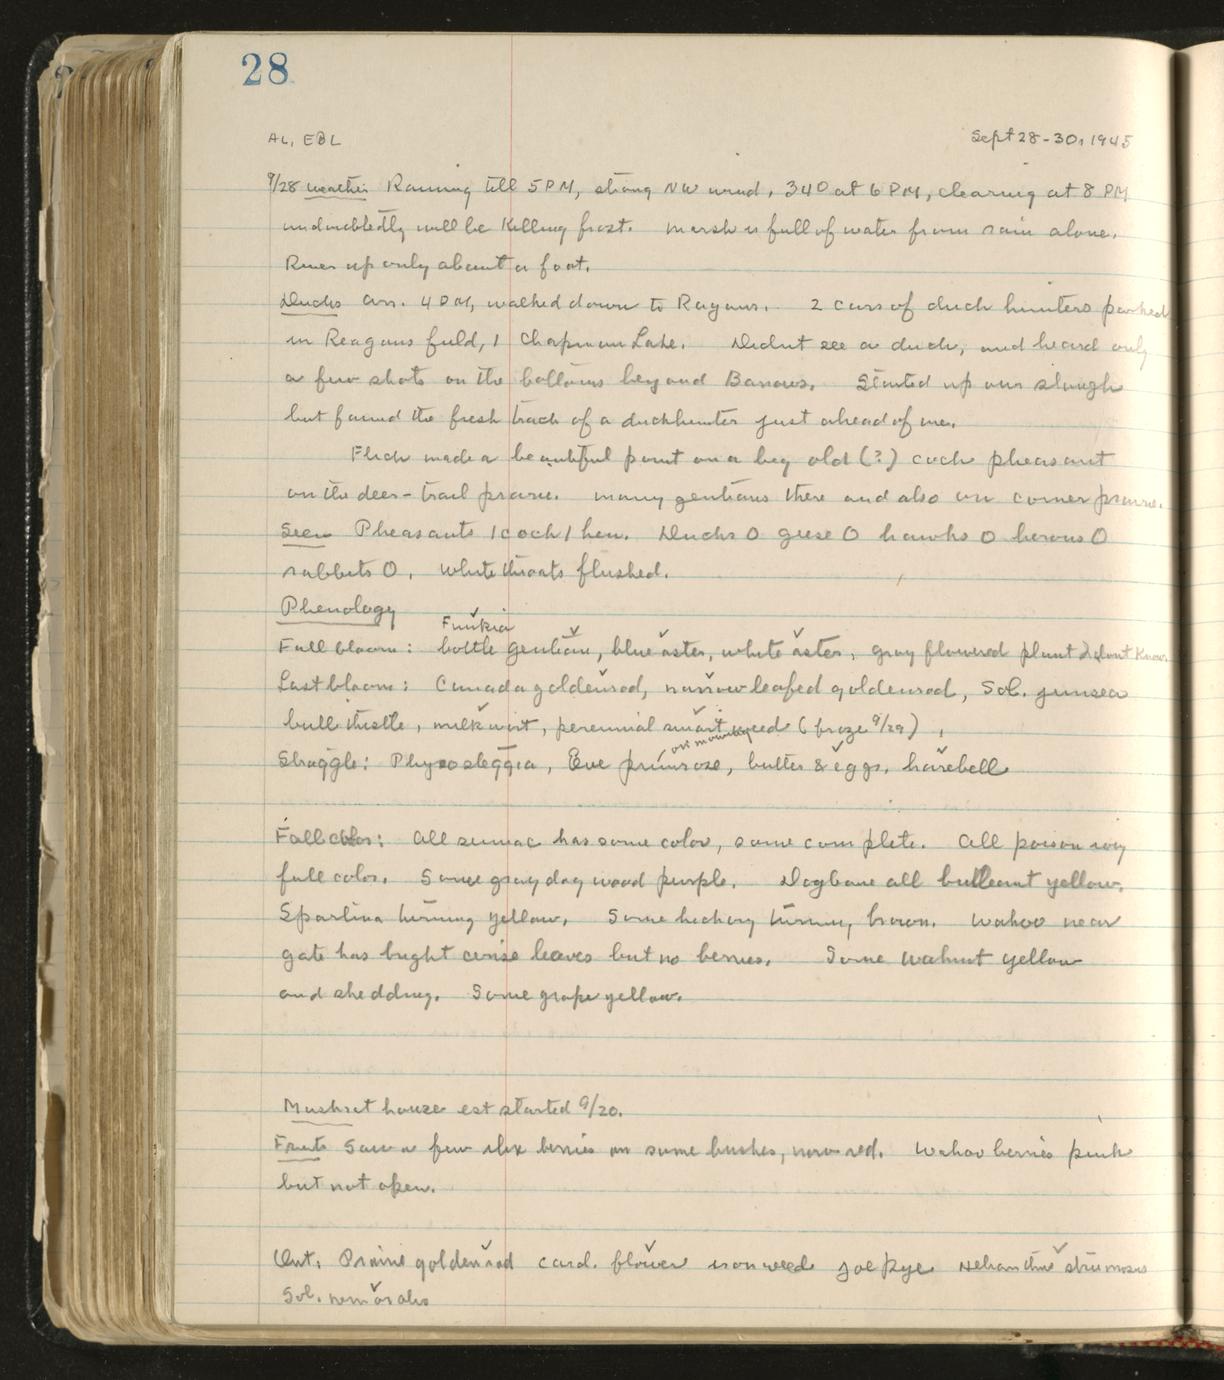 28
AL, EBL Sept 28-30, 1945
9/28 weather Raining till 5 PM, strong NW wind, 34° at 6 PM, clearing at 8 PM
undoubtedly will be killing frost. Marsh is full of water from rain alone.
River up only about a foot.
Ducks arr. 4 PM, walked down to Ragans. 2 cars of duck hunters parked
in Reagans field, 1 Chapman Lake. Didnt see a duck, and heard only
a few shots on the bottoms beyond Barrows. Started up our slough
but found the fresh track of a duckhunter just ahead of me.
Flick made a beautiful point on a big old (?) cock pheasant
on the deer-trail prairie. Many gentians there and also on corner prairie.
Seen Pheasants 1 cock 1 hen. Ducks 0 geese 0 hawks 0 herons 0
rabbits 0. Whitethroats flushed.
Phenology
Funkia
Full bloom: bottle gentian, blue aster, white aster, gray flowered plant I dont know
Last bloom: Canada goldenrod, narrow leafed goldenrod, Sol. juncea
bull thistle, milkwort, perennial smartweed (froze 9/29),
on moraine
Straggle: Physostegia, Eve primrose, butter & eggs, harebell
Fall color: All sumac has some color, some complete. All poison ivy
full color. Some gray dogwood purple. Dogbane all brilliant yellow.
Spartina turning yellow. Some hickory turning brown. Wahoo near
gate has bright cerise leaves but no berries. Some walnut yellow
and shedding. Some grape yellow.
Muskrat house est started 9/20.
Fruits Saw a few ilex berries on some bushes, now red. Wahoo berries pink
but not open.
Out: Prairie goldenrod card. flower ironweed joe pye Helianthus strumosus
Sol. nemoralis